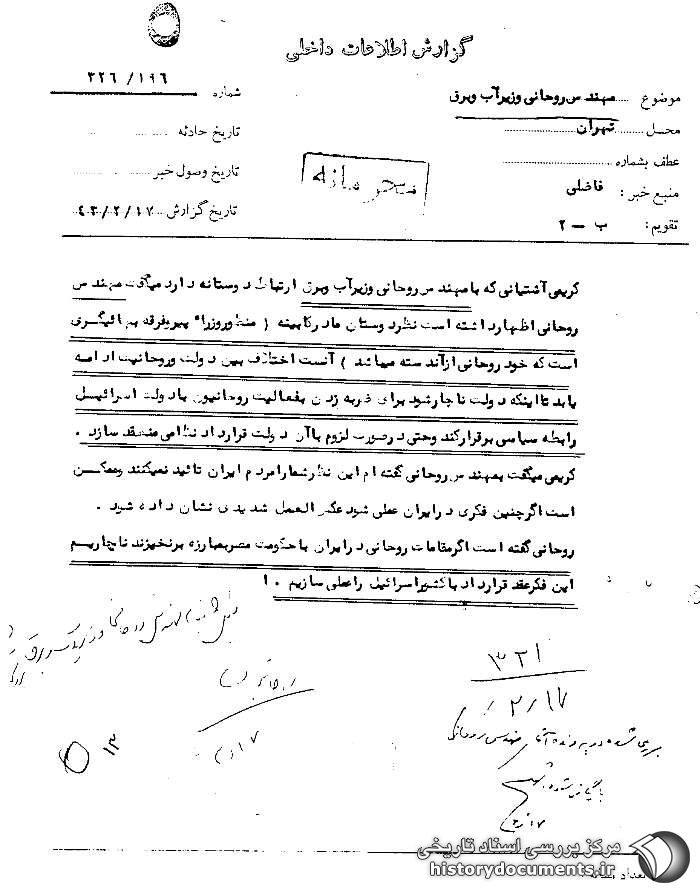 گزارش اطلاعات داخلی
موضوع ..... مهندس روحانی وزیر آب وبرق
شماره ۳۲۶/۱۹۶
محل ........ تهران
تاریخ حادثه
عطف بشماره
تاریخ وصول خبر
منبع خبر : فاضلی
تاریخ گزارش ۴۳/۲/۱۷
تقویم : ب – ۲
محرمانه
کریمی آشتیانی که با مهندس روحانی وزیر آب وبرق ارتباط دوستانه دارد میگفت مهندس
روحانی اظهار داشته است نظر دوستان ما در کابینه ( منظور وزراء پیرو فرقه بهائیگری
است که خود روحانی از آن دسته میباشد ) آنست اختلاف بین دولت وروحانیت ادامه
یابد تا اینکه دولت ناچار شود برای ضربه زدن بفعالیت روحانیون با دولت اسرائیل
رابطه سیاسی برقرار کند وحتی در صورت لزوم با آن دولت قرارداد نظامی منعقد سازد .
کریمی میگفت بمهندس روحانی گفته ام این نظر شما را مردم ایران تائید نمیکنند وممکن
است اگر چنین فکری در ایران عملی شود عکس العمل شدیدی نشان داده شود .
روحانی گفته است اگر مقامات روحانی در ایران با حکومت مصر بمبارزه برنخیزند ناچاریم
این فکر عقد قرارداد با کشور اسرائیل را عملی سازیم . ا
۳۲۱
۲/۱۷
در پرونده آقای مهندس روحانی
بایگانی شود
۱۳
مرکز بررسی اسناد تاریخی
historydocuments.ir
تعداد